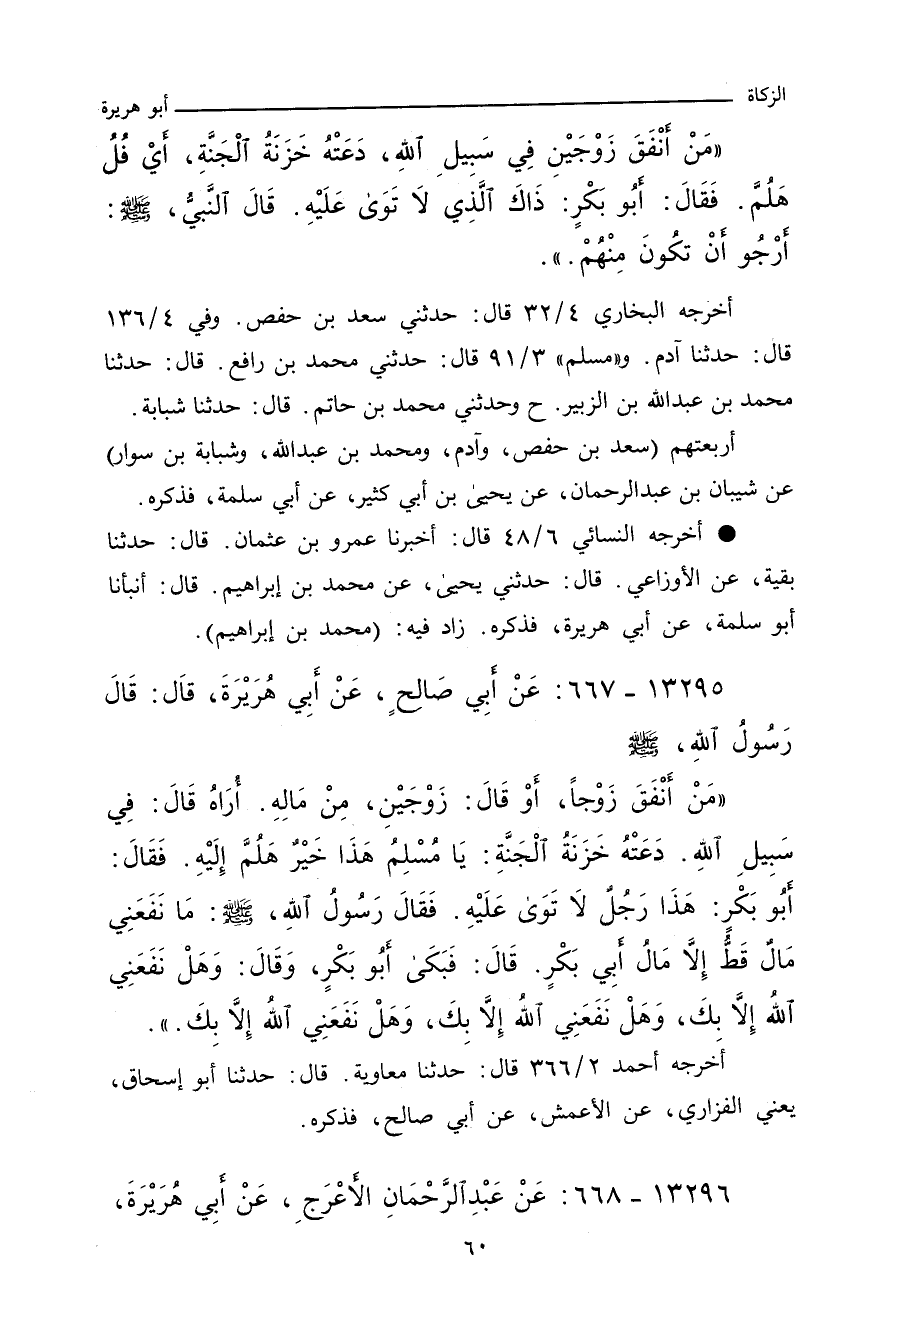 الزكاة ــــــــــ أبو هريرة
«مَنْ أَنْفَقَ زَوْجَيْنِ فِي سَبِيلِ ٱللهِ، دَعَتْهُ خَزَنَةُ ٱلْجَنَّةِ، أَيْ فُلُ
هَلُمَّ. فَقَالَ: أَبُو بَكْرٍ: ذَاكَ ٱلَّذِي لَا تَوَىٰ عَلَيْهِ. قَالَ ٱلنَّبِيُّ، ﷺ:
أَرْجُو أَنْ تكُونَ مِنْهُمْ.».
أخرجه البخاري ٣٢/٤ قال: حدثني سعد بن حفص. وفي ١٣٦/٤
قال: حدثنا آدم. و«مسلم» ٩١/٣ قال: حدثني محمد بن رافع. قال: حدثنا
محمد بن عبدالله بن الزبير. ح وحدثني محمد بن حاتم. قال: حدثنا شبابة.
أربعتهم (سعد بن حفص، وآدم، ومحمد بن عبدالله، وشبابة بن سوار)
عن شيبان بن عبدالرحمان، عن يحيىٰ بن أبي كثير، عن أبي سلمة، فذكره.
● أخرجه النسائي ٤٨/٦ قال: أخبرنا عمرو بن عثمان. قال: حدثنا
بقية، عن الأوزاعي. قال: حدثني يحيىٰ، عن محمد بن إبراهيم. قال: أنبأنا
أبو سلمة، عن أبي هريرة، فذكره. زاد فيه: (محمد بن إبراهيم).
١٣٢٩٥ - ٦٦٧: عَنْ أَبِي صَالِحٍ، عَنْ أَبِي هُرَيْرَةَ، قاَل: قَالَ
رَسُولُ ٱللهِ، ﷺ
«مَنْ أَنْفَقَ زَوْجاً، أَوْ قَالَ: زَوْجَيْنِ، مِنْ مَالِهِ. أُرَاهُ قَالَ: فِي
سَبِيلِ ٱللهِ. دَعَتْهُ خَزَنَةُ ٱلْجَنَّةِ: يَا مُسْلِمُ هَذَا خَيْرٌ هَلُمَّ إِلَيْهِ. فَقَالَ:
أَبُو بَكْرٍ: هَذَا رَجُلٌ لَا تَوَىٰ عَلَيْهِ. فَقَالَ رَسُولُ ٱللهِ، ﷺ: مَا نَفَعَنِي
مَالٌ قَطُّ إِلَّا مَالُ أَبِي بَكْرٍ. قَالَ: فَبَكَىٰ أَبُو بَكْرٍ، وَقَالَ: وَهَلْ نَفَعَنِي
ٱللهُ إِلَّا بِكَ، وَهَلْ نَفَعَنِي ٱللهُ إِلَّا بِكَ، وَهَلْ نَفَعَنِي ٱللهُ إِلَّا بِكَ.».
أخرجه أحمد ٣٦٦/٢ قال: حدثنا معاوية. قال: حدثنا أبو إسحاق،
يعني الفزاري، عن الأعمش، عن أبي صالح، فذكره.
١٣٢٩٦ - ٦٦٨: عَنْ عَبْدِٱلرَّحْمَانِ الأَعْرَجِ، عَنْ أَبِي هُرَيْرَةَ،
٦٠